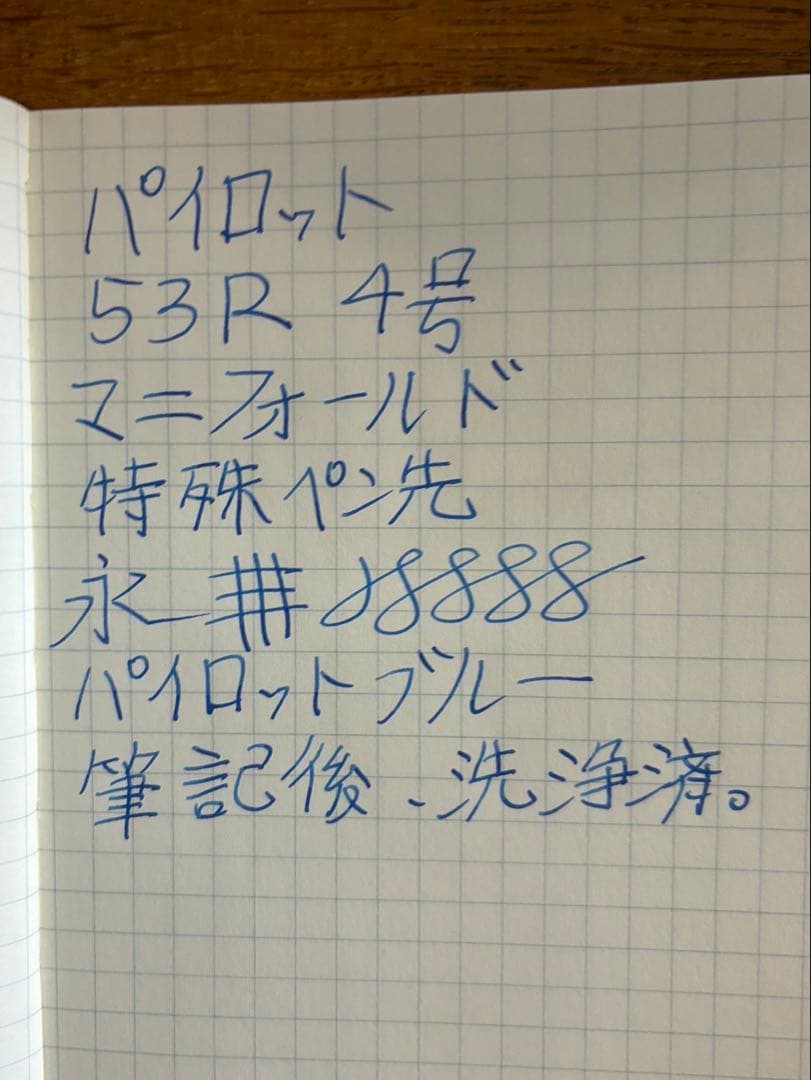 パイロット
53R 4号
マニフォールド
特殊ペン先
永
パイロットブルー
筆記後、洗浄済。